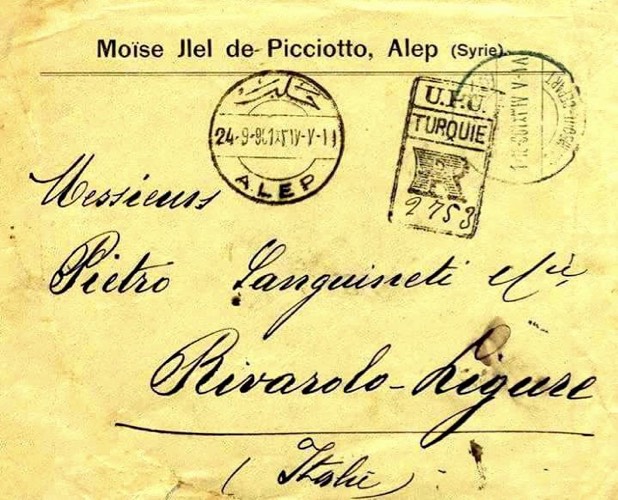 Moïse Jlel de Picciotto, Alep (Syrie)
حلب
ALEP
U.P.U.
TURQUIE
R
2753
Messieurs
Pietro Sanguineti & Cie
Rivarolo-Ligure
(Italie)